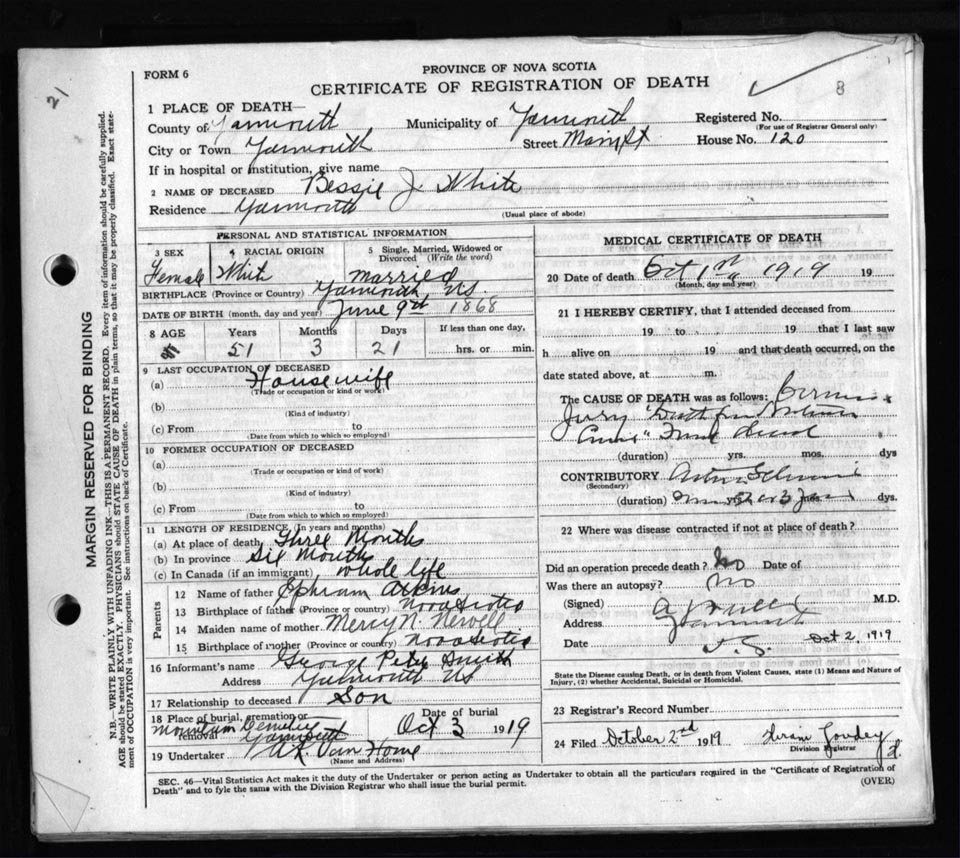 21
8
FORM 6
PROVINCE OF NOVA SCOTIA
CERTIFICATE OF REGISTRATION OF DEATH
MARGIN RESERVED FOR BINDING
N.B.—WRITE PLAINLY WITH UNFADING INK—THIS IS A PERMANENT RECORD. Every item of information should be carefully supplied.
AGE should be stated EXACTLY. PHYSICIANS should STATE CAUSE OF DEATH in plain terms, so that it may be properly classified. Exact state-
ment of OCCUPATION is very important. See instructions on back of Certificate.
1 PLACE OF DEATH—
County of Yarmouth Municipality of Yarmouth Registered No.
(For use of Registrar General only)
City or Town Yarmouth Street Main St House No. 120
If in hospital or institution, give name
2 NAME OF DECEASED Bessie J White
Residence Yarmouth
(Usual place of abode)
PERSONAL AND STATISTICAL INFORMATION
3 SEX 4 RACIAL ORIGIN 5 Single, Married, Widowed or Divorced (Write the word)
Female White Married
BIRTHPLACE (Province or Country) Yarmouth NS.
DATE OF BIRTH (month, day and year) June 9th 1868
8 AGE Years Months Days If less than one day,
51 3 21 hrs. or min.
9 LAST OCCUPATION OF DECEASED
(a) Housewife
(Trade or occupation or kind or work)
(b)
(Kind of industry)
(c) From to
(Date from which to which so employed)
10 FORMER OCCUPATION OF DECEASED
(a)
(Trade or occupation or kind of work)
(b)
(Kind of industry)
(c) From to
(Date from which to which so employed)
11 LENGTH OF RESIDENCE (In years and months)
(a) At place of death Three Months
(b) In province Six Months
(c) In Canada (if an immigrant) whole life
Parents
12 Name of father Ephram Atkins
13 Birthplace of father (Province or country) Nova Scotia
14 Maiden name of mother Mercy N. Newell
15 Birthplace of mother (Province or country) Nova Scotia
16 Informant's name George Peter Smith
Address Yarmouth NS
17 Relationship to deceased Son
18 Place of burial, cremation or removal Mountain Cemetery Yarmouth Date of burial Oct 3 1919
19 Undertaker Van Horne
(Name and Address)
MEDICAL CERTIFICATE OF DEATH
20 Date of death Oct 1st 1919 19
(Month, day and year)
21 I HEREBY CERTIFY, that I attended deceased from
19 to 19 that I last saw
h alive on 19 and that death occurred, on the
date stated above, at m.
The CAUSE OF DEATH was as follows:
Jury "Death from
(duration) yrs. mos. dys
CONTRIBUTORY
(Secondary)
(duration) dys.
22 Where was disease contracted if not at place of death?
Did an operation precede death? No Date of
Was there an autopsy? No
(Signed) M.D.
Address Yarmouth
Date Oct 2, 1919
N.S.
State the Disease causing Death, or in death from Violent Causes, state (1) Means and Nature of
Injury, (2) whether Accidental, Suicidal or Homicidal.
23 Registrar's Record Number
24 Filed October 2nd 1919 Hiram Goudey
Division Registrar
SEC. 46—Vital Statistics Act makes it the duty of the Undertaker or person acting as Undertaker to obtain all the particulars required in the "Certificate of Registration of
Death" and to fyle the same with the Division Registrar who shall issue the burial permit.
(OVER)